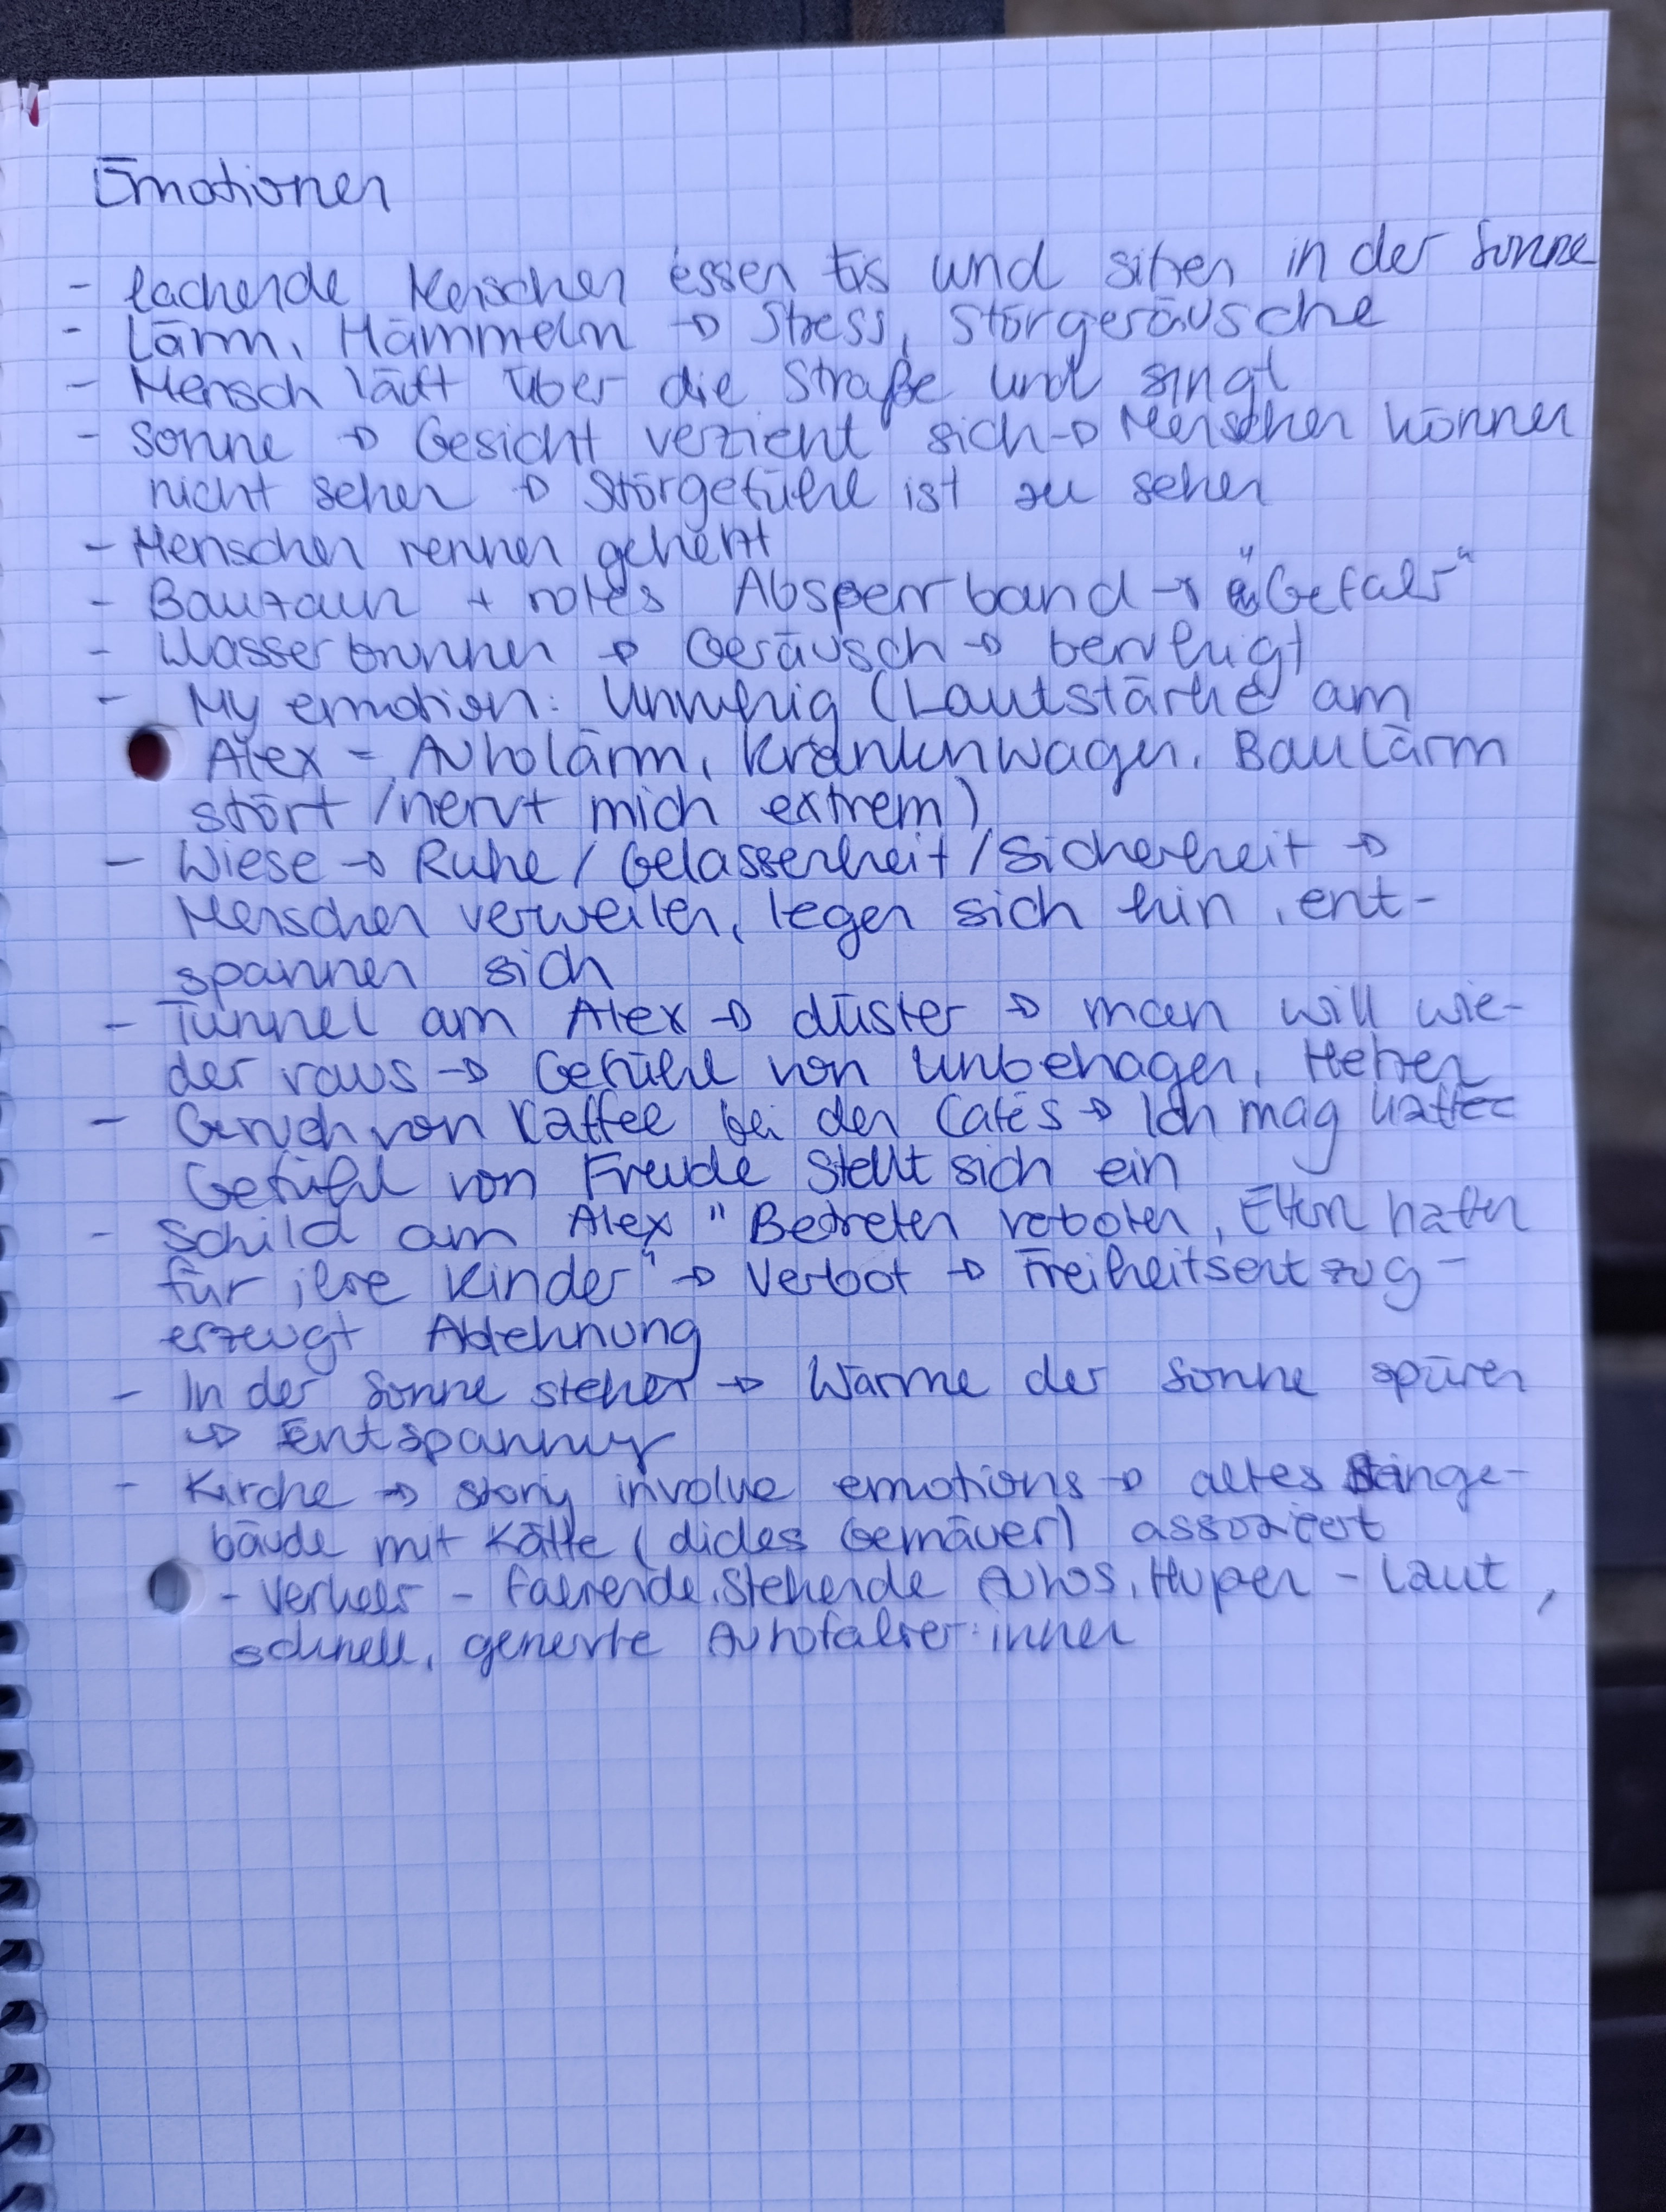 Emotionen
- lachende Menschen essen Eis und sitzen in der Sonne
- Lärm, Hämmeln → Stress, Störgeräusche
- Mensch läuft über die Straße und singt
- Sonne → Gesicht verzieht sich → Menschen können
nicht sehen → Störgefühl ist zu sehen
- Menschen rennen gehetzt
- Bauzaun + rotes Absperrband → "Gefahr"
- Wasserbrunnen → Geräusch → beruhigt
- My emotion: Unruhig (Lautstärke am
Alex - Autolärm, Krankenwagen, Baulärm
stört/nervt mich extrem)
- Wiese → Ruhe/Gelassenheit/Sicherheit →
Menschen verweilen, legen sich hin, ent-
spannen sich
- Tunnel am Alex → düster → man will wie-
der raus → Gefühl von Unbehagen,
- Geruch von Kaffee bei den Cafés → Ich mag Kaffee
Gefühl von Freude stellt sich ein
- Schild am Alex "Betreten verboten, Eltern haften
für ihre Kinder" → Verbot → Freiheitsentzug -
erzeugt Ablehnung
- In der Sonne stehen → Wärme der Sonne spüren
→ Entspannung
- Kirche → story involve emotions → altes Steinge-
bäude mit Kälte (dickes Gemäuer) assoziiert
- Verkehr - fahrende, stehende Autos, Hupen - laut,
schnell, genervte Autofahrer:innen